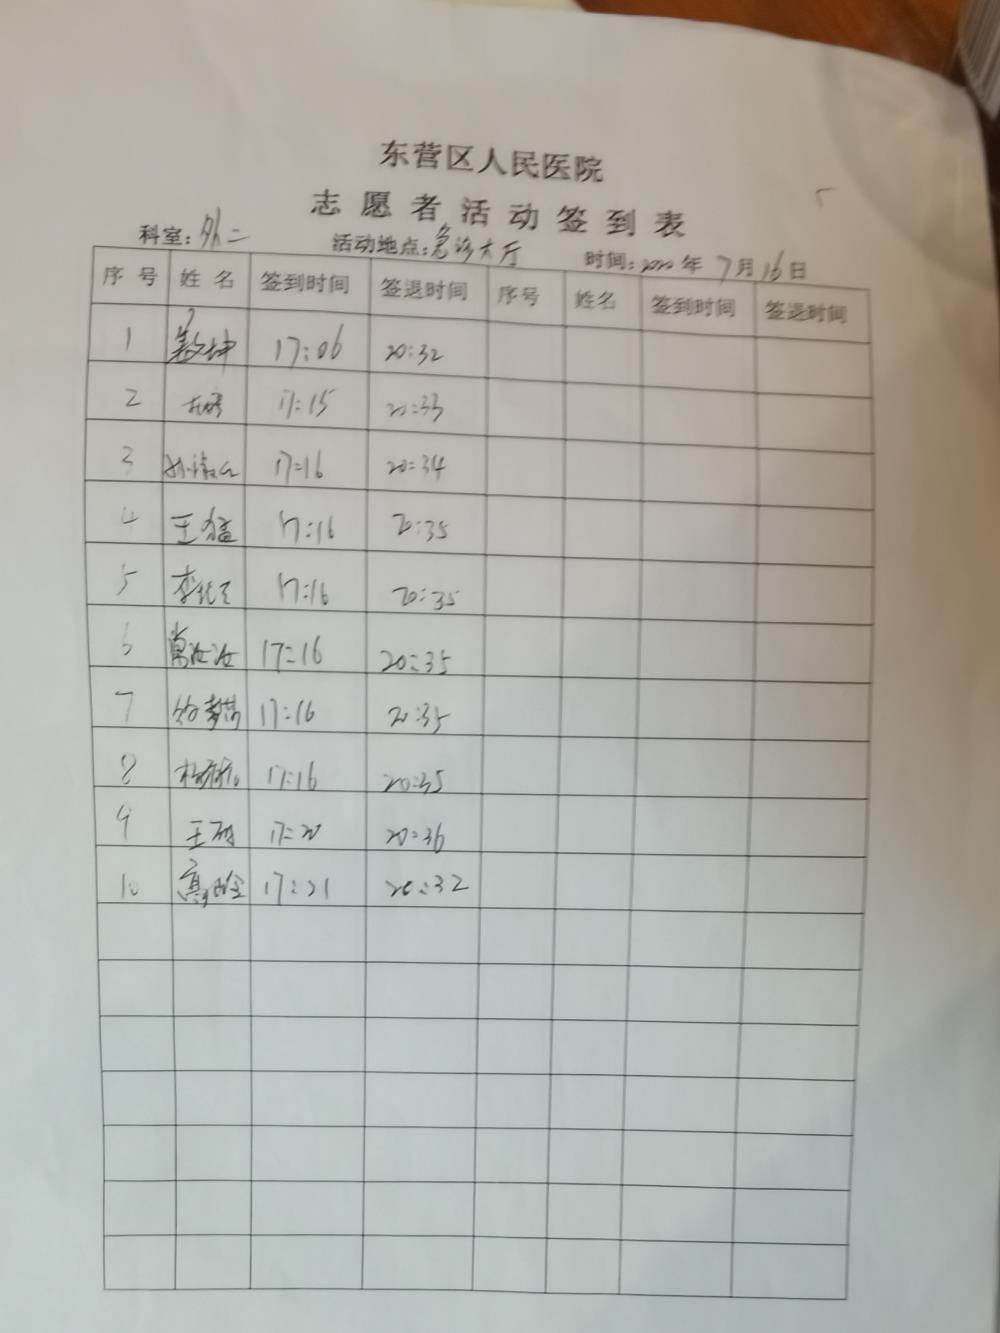 东营区人民医院
志愿者活动签到表
科室：外二 活动地点：急诊大厅 时间：2020年7月16日
序号 姓名 签到时间 签退时间 序号 姓名 签到时间 签退时间
1 17:06 20:32
2 17:15 20:33
3 17:16 20:34
4 王猛 17:16 20:35
5 17:16 20:35
6 常汝汝 17:16 20:35
7 17:16 20:35
8 17:16 20:35
9 王 17:20 20:36
10 17:21 20:32